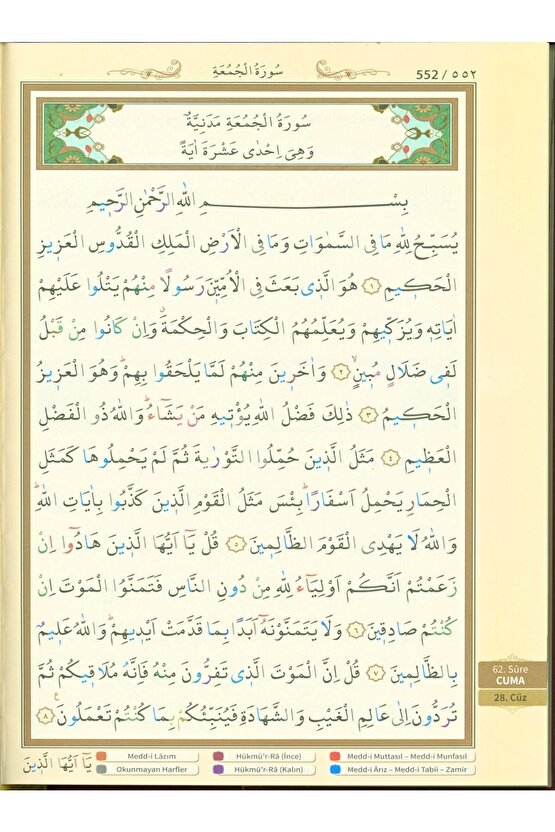 سُورَةُ الْجُمُعَةِ
552 / ٥٥٢
سُورَةُ الْجُمُعَةِ مَدَنِيَّةٌ
وَهِيَ اِحْدٰى عَشْرَةَ اٰيَةً
بِسْمِ اللّٰهِ الرَّحْمٰنِ الرَّحٖيمِ
يُسَبِّحُ لِلّٰهِ مَا فِي السَّمٰوَاتِ وَمَا فِي الْاَرْضِ الْمَلِكِ الْقُدُّوسِ الْعَزٖيزِ
الْحَكٖيمِ ﴿١﴾ هُوَ الَّذٖي بَعَثَ فِي الْاُمِّيّٖنَ رَسُولًا مِنْهُمْ يَتْلُوا عَلَيْهِمْ
اٰيَاتِهٖ وَيُزَكّٖيهِمْ وَيُعَلِّمُهُمُ الْكِتَابَ وَالْحِكْمَةَۗ وَاِنْ كَانُوا مِنْ قَبْلُ
لَفٖي ضَلَالٍ مُبٖينٍۙ ﴿٢﴾ وَاٰخَرٖينَ مِنْهُمْ لَمَّا يَلْحَقُوا بِهِمْۜ وَهُوَ الْعَزٖيزُ
الْحَكٖيمُ ﴿٣﴾ ذٰلِكَ فَضْلُ اللّٰهِ يُؤْتٖيهِ مَنْ يَشَٓاءُۜ وَاللّٰهُ ذُو الْفَضْلِ
الْعَظٖيمِ ﴿٤﴾ مَثَلُ الَّذٖينَ حُمِّلُوا التَّوْرٰيةَ ثُمَّ لَمْ يَحْمِلُوهَا كَمَثَلِ
الْحِمَارِ يَحْمِلُ اَسْفَارًاۜ بِئْسَ مَثَلُ الْقَوْمِ الَّذٖينَ كَذَّبُوا بِاٰيَاتِ اللّٰهِۜ
وَاللّٰهُ لَا يَهْدِي الْقَوْمَ الظَّالِمٖينَ ﴿٥﴾ قُلْ يَٓا اَيُّهَا الَّذٖينَ هَادُٓوا اِنْ
زَعَمْتُمْ اَنَّكُمْ اَوْلِيَٓاءُ لِلّٰهِ مِنْ دُونِ النَّاسِ فَتَمَنَّوُا الْمَوْتَ اِنْ
كُنْتُمْ صَادِقٖينَ ﴿٦﴾ وَلَا يَتَمَنَّوْنَهُٓ اَبَدًا بِمَا قَدَّمَتْ اَيْدٖيهِمْۜ وَاللّٰهُ عَلٖيمٌ
بِالظَّالِمٖينَ ﴿٧﴾ قُلْ اِنَّ الْمَوْتَ الَّذٖي تَفِرُّونَ مِنْهُ فَاِنَّهُ مُلَاقٖيكُمْ ثُمَّ
تُرَدُّونَ اِلٰى عَالِمِ الْغَيْبِ وَالشَّهَادَةِ فَيُنَبِّئُكُمْ بِمَا كُنْتُمْ تَعْمَلُونَ ﴿٨﴾
62. Sûre
CUMA
28. Cüz
يَٓا اَيُّهَا الَّذٖينَ
Medd-i Lâzım Hükmü'r-Râ (İnce) Medd-i Muttasıl – Medd-i Munfasıl
Okunmayan Harfler Hükmü'r-Râ (Kalın) Medd-i Ârız – Medd-i Tabii – Zamir